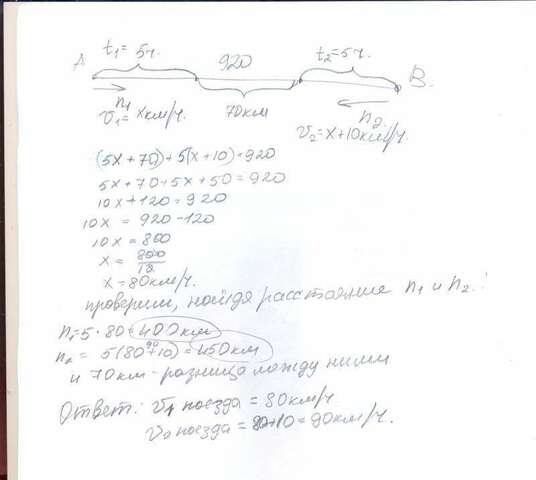 t₁ = 5ч. 920 t₂ = 5ч.
A B
n₁ 70км n₂
v₁ = x км/ч. v₂ = x + 10 км/ч.
(5x + 70) + 5(x + 10) = 920
5x + 70 + 5x + 50 = 920
10x + 120 = 920
10x = 920 - 120
10x = 800
x = 800/10
x = 80 км/ч.
проверим, найдя расстояние n₁ и n₂:
n₁ = 5 · 80 = 400 км
n₂ = 5(80 + 10) = 450 км
90
и 70 км - разница между ними
Ответ: v₁ поезда = 80 км/ч
v₂ поезда = 80 + 10 = 90 км/ч.